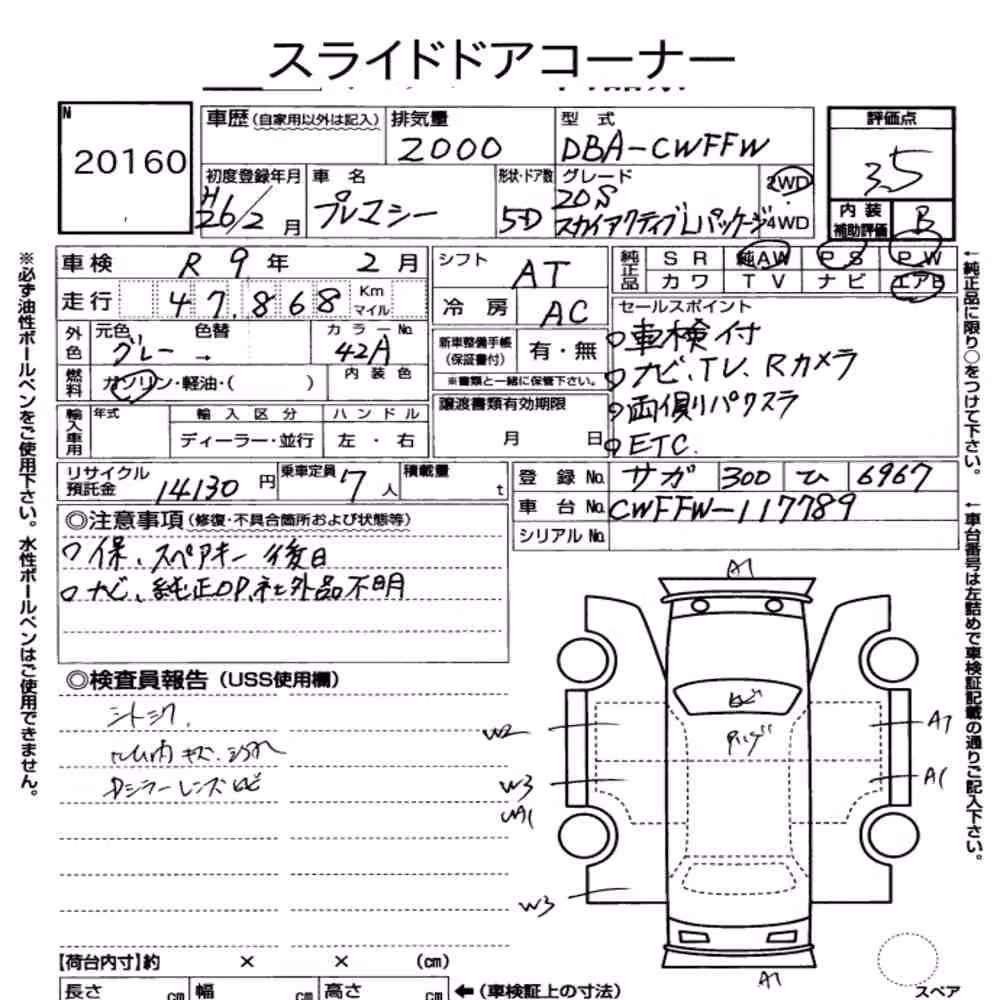 スライドドアコーナー
N
20160
車歴 (自家用以外は記入)
排気量
2000
型 式
DBA-CWFFW
評価点
3.5
初度登録年月
H26/2 月
車 名
プレマシー
形状・ドア数
5D
グレード
20S
スカイアクティブLパッケージ
2WD
4WD
内 装
補助評価
B
車検 R 9 年 2 月
走行 47,868 Km マイル
シフト AT
冷 房 AC
純正品 S R 純AW P S P W
カワ T V ナビ エアB
外色 元色 グレー → 色替 カラーNo. 42A
燃料 ガソリン・軽油・( ) 内 装 色
新車整備手帳
(保証書付)
有・無
※書類と一緒に保管下さい。
セールスポイント
車検付
ナビ、TV、Rカメラ
両側パワスラ
ETC
輸入車用 年式 輸 入 区 分 ハ ン ド ル
ディーラー・並行 左 ・ 右
譲渡書類有効期限
月 日
リサイクル
預託金
14130 円
乗車定員 7 人
積載量 t
登 録 No. サガ 300 ひ 6967
車 台 No. CWFFW-117789
シリアル No.
◎注意事項 (修復・不具合箇所および状態等)
保、スペアキー 後日
ナビ、純正OP、社外品不明
◎検査員報告 (USS使用欄)
シートシミ
内キズ
レンズ
A1
W2
W3
W3
A1
A1
A1
【荷台内寸】約 × × (cm)
長さ cm 幅 cm 高さ cm ← (車検証上の寸法)
スペア
※必ず油性ボールペンをご使用下さい。水性ボールペンはご使用できません。
←純正品に限り○をつけて下さい。
←車台番号は左詰めで車検証記載の通りご記入下さい。